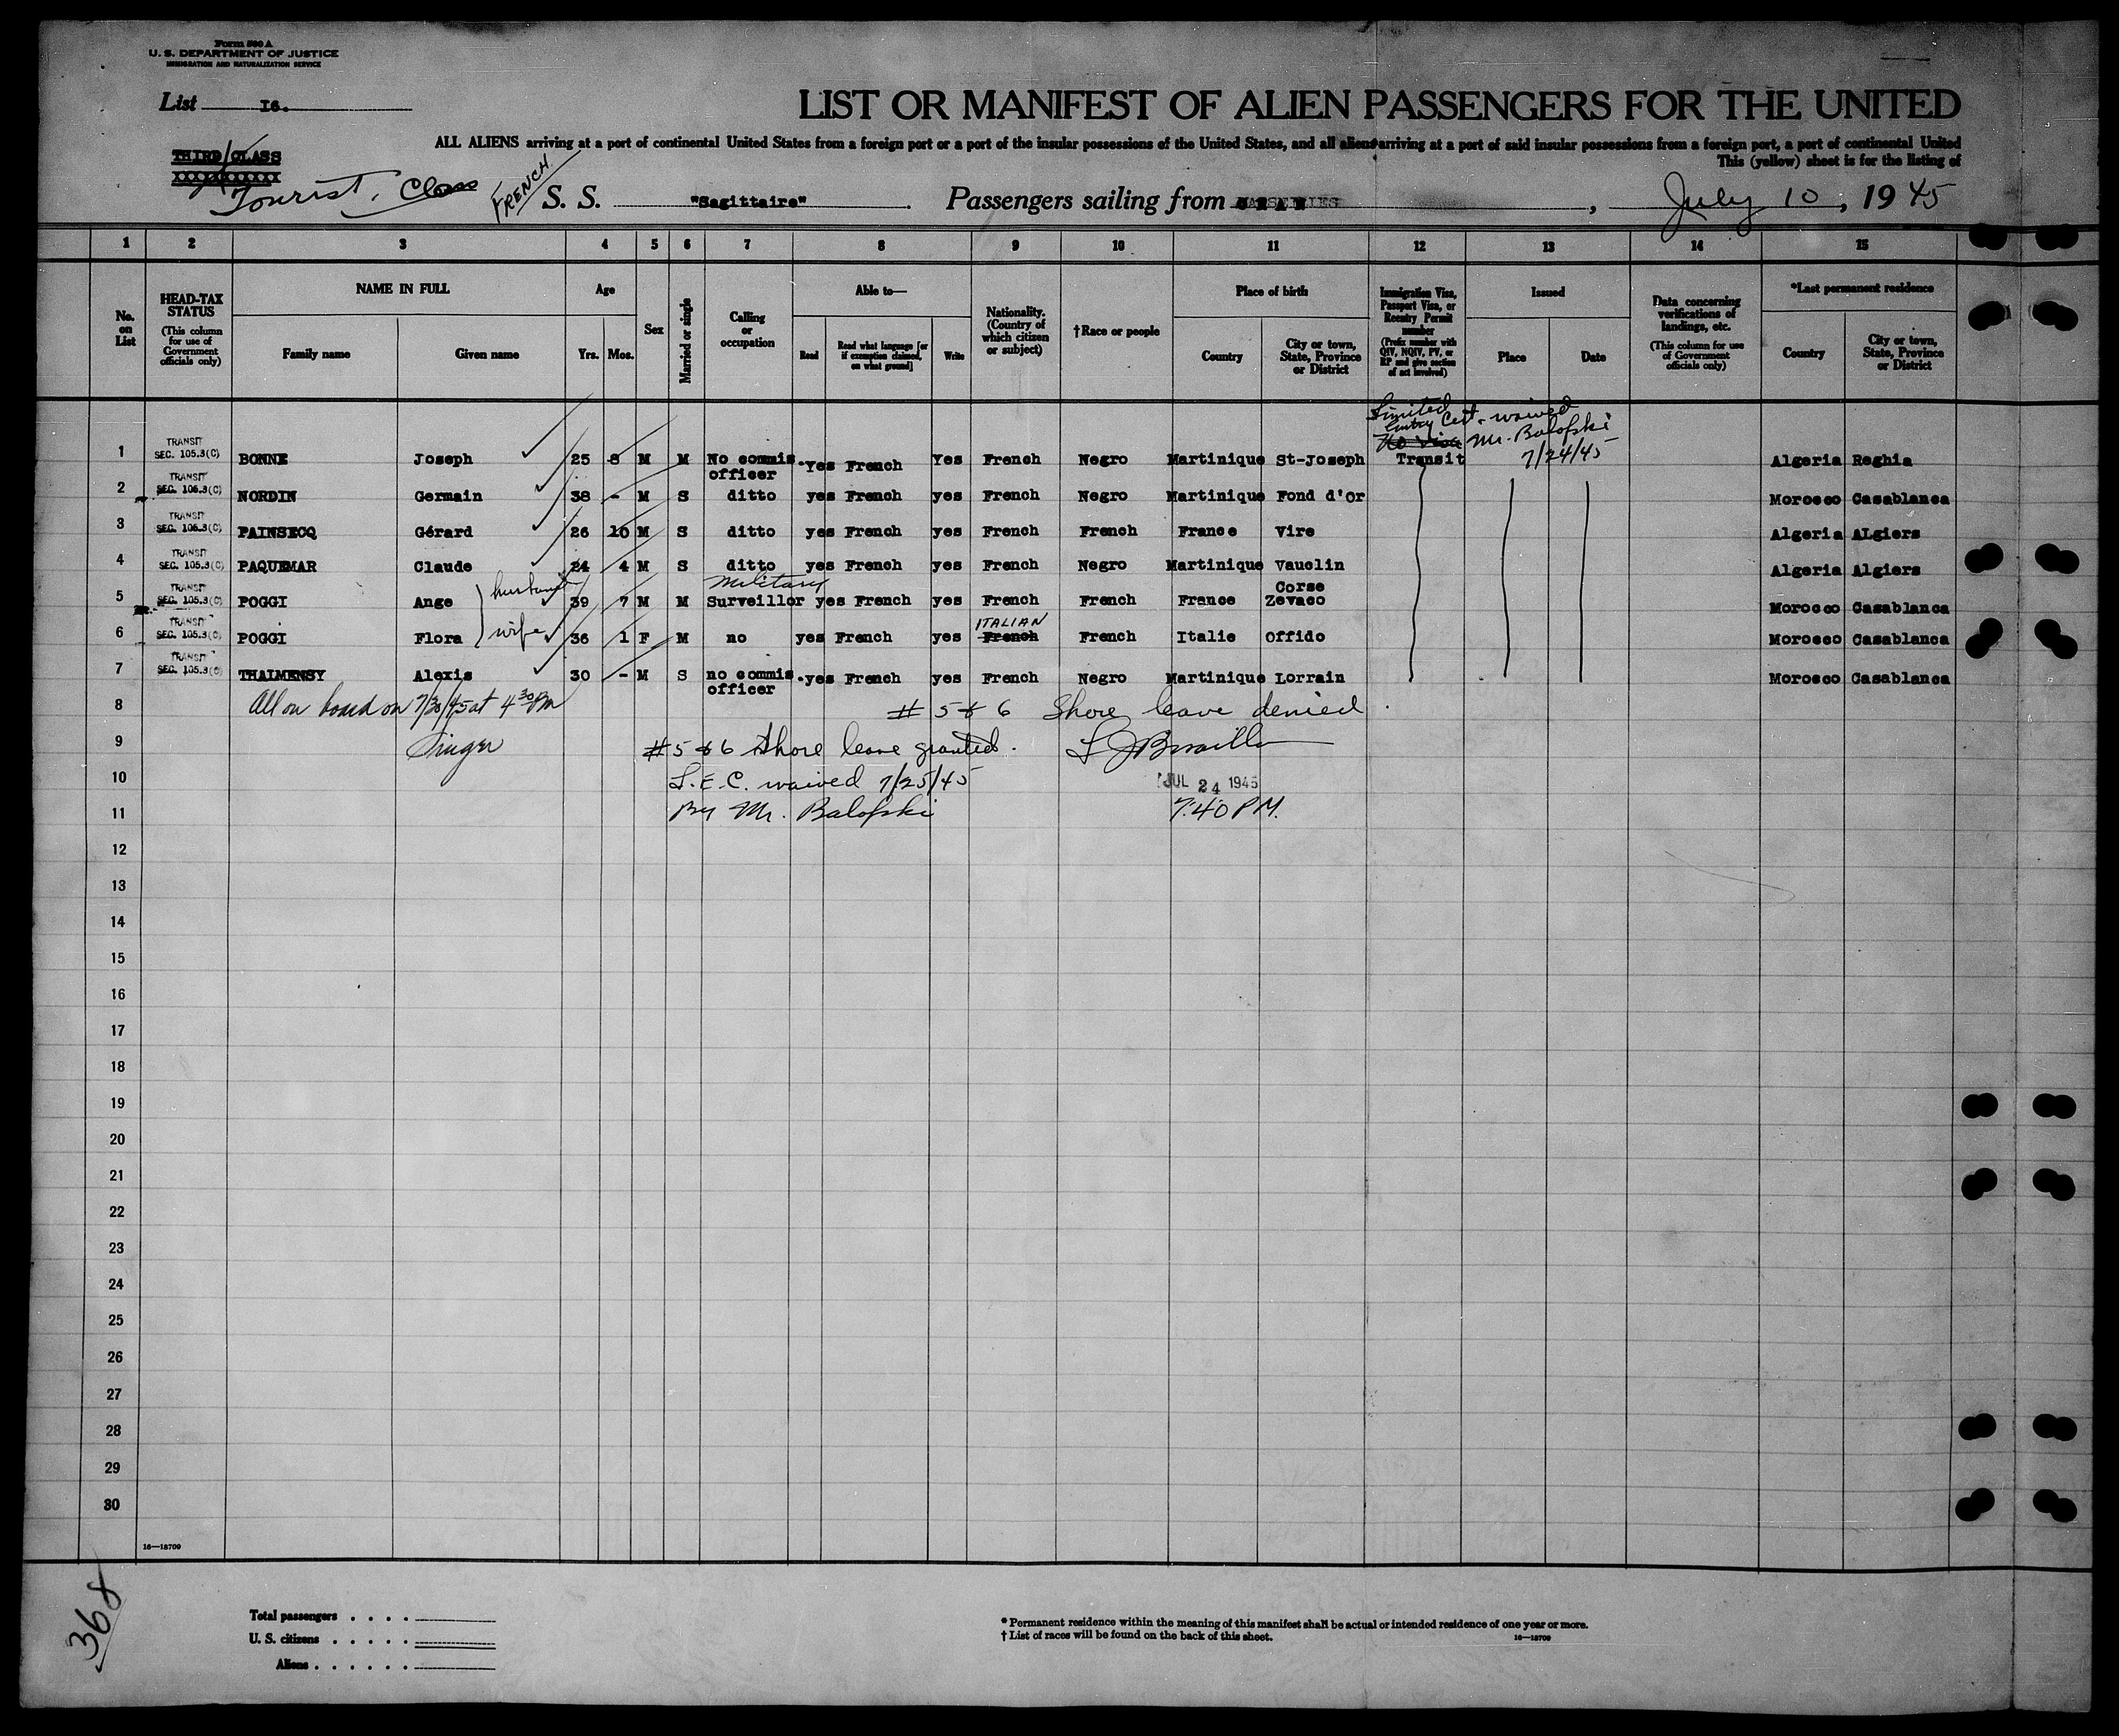 Form 500 A
U. S. DEPARTMENT OF JUSTICE
IMMIGRATION AND NATURALIZATION SERVICE
List I6.
LIST OR MANIFEST OF ALIEN PASSENGERS FOR THE UNITED
ALL ALIENS arriving at a port of continental United States from a foreign port or a port of the insular possessions of the United States, and all aliens arriving at a port of said insular possessions from a foreign port, a port of continental United
This (yellow) sheet is for the listing of
THIRD CLASS
XXXXXXXXXXX
Tourist, Class
FRENCH S. S. "Sagittaire" Passengers sailing from , July 10, 1945
1 2 3 4 5 6 7 8 9 10 11 12 13 14 15
No. on List
HEAD-TAX STATUS (This column for use of Government officials only)
NAME IN FULL
Family name Given name
Age
Yrs. Mos.
Sex
Married or single
Calling or occupation
Able to—
Read Read what language [or if exemption claimed, on what ground] Write
Nationality. (Country of which citizen or subject)
†Race or people
Place of birth
Country City or town, State, Province or District
Immigration Visa, Passport Visa, or Reentry Permit number (Prefix number with QIV, NQIV, PV, or RP and give section of act involved)
Issued
Place Date
Data concerning verifications of landings, etc. (This column for use of Government officials only)
*Last permanent residence
Country City or town, State, Province or District
Limited
Entry Cert. waived
No visa Mr. Balofski
7/24/45
1 TRANSIT SEC. 105.3(C) BONNE Joseph 25 8 M M No commis. officer Yes French Yes French Negro Martinique St-Joseph Transit Algeria Reghia
2 TRANSIT SEC. 105.3(C) NORDIN Germain 38 - M S ditto yes French yes French Negro Martinique Fond d'or Morocco Casablanca
3 TRANSIT SEC. 105.3(C) PAINSECQ Gérard 26 10 M S ditto yes French yes French French France Vire Algeria ALgiers
4 TRANSIT SEC. 105.3(C) PAQUEMAR Claude 24 4 M S ditto yes French yes French Negro Martinique Vauclin Algeria Algiers
5 TRANSIT SEC. 105.3(C) POGGI Ange husband 39 7 M M Military Surveillor yes French yes French French France Corse Zevaco Morocco Casablanca
6 TRANSIT SEC. 105.3(C) POGGI Flora wife 36 1 F M no yes French yes ITALIAN French French Italie Offido Morocco Casablanca
7 TRANSIT SEC. 105.3(C) THALMENSY Alexis 30 - M S no commis. officer yes French yes French Negro Martinique Lorrain Morocco Casablanca
8 All on board on 7/30/45 at 4 30 PM # 5 & 6 Shore leave denied.
9 Singer # 5 & 6 Shore leave granted.
10 L.E.C. waived 7/25/45 JUL 24 1945
11 By Mr. Balofski 7:40 PM.
12
13
14
15
16
17
18
19
20
21
22
23
24
25
26
27
28
29
30
16—18709
368
Total passengers . . . .
U. S. citizens . . . . .
Aliens . . . . . .
* Permanent residence within the meaning of this manifest shall be actual or intended residence of one year or more.
† List of races will be found on the back of this sheet.
16—18709